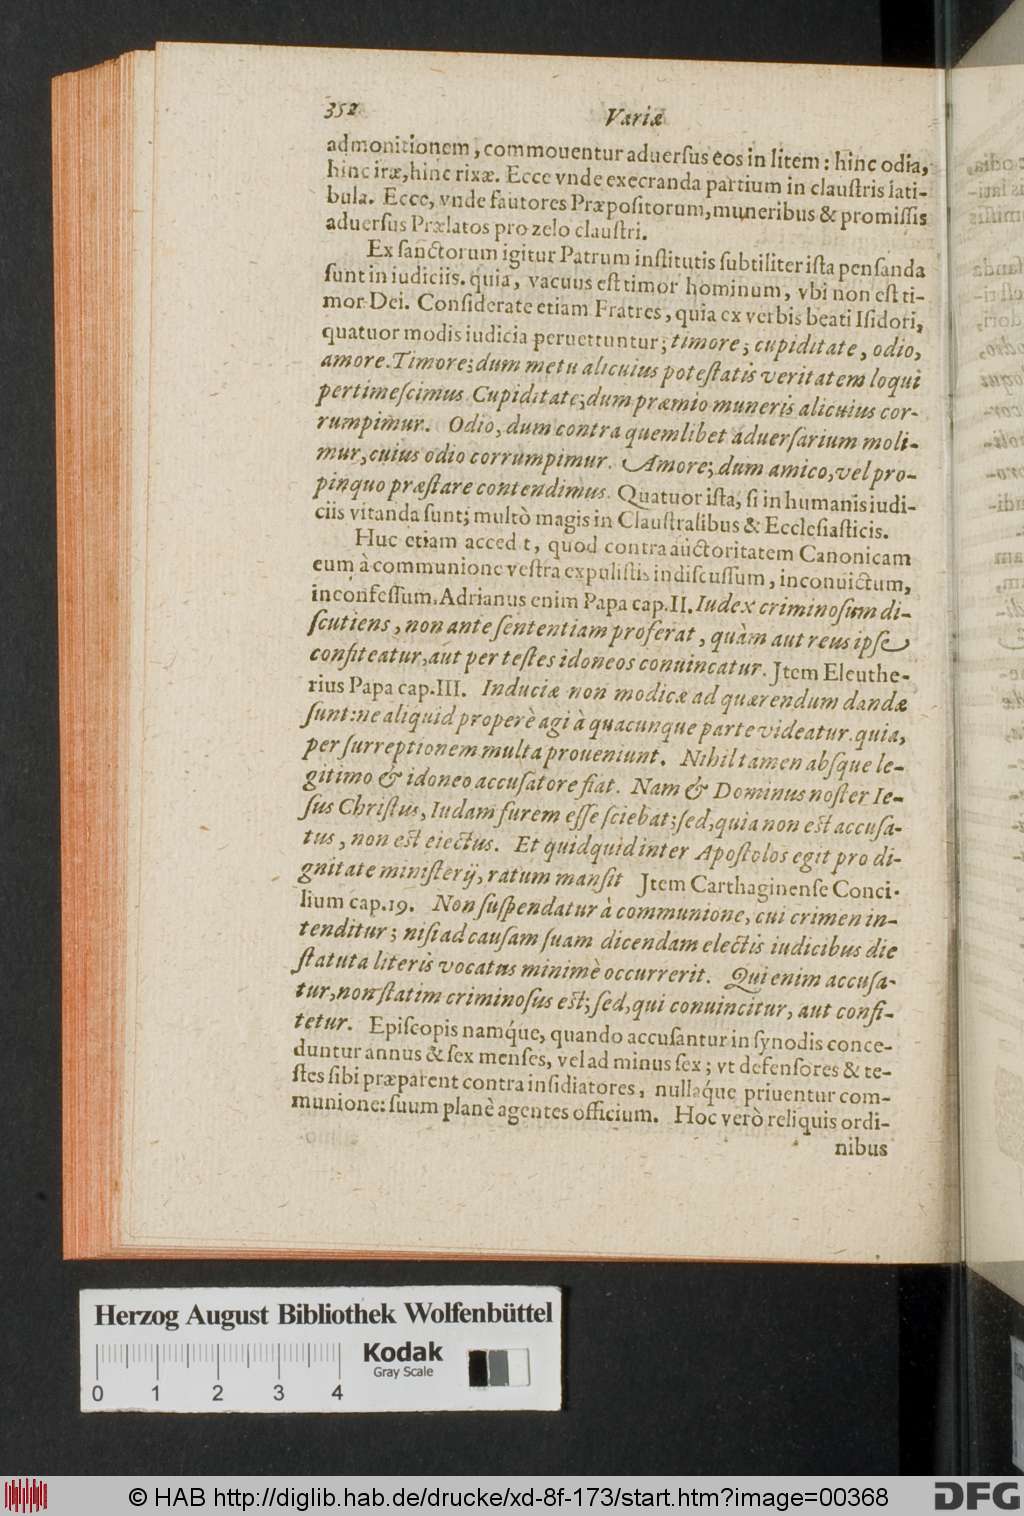 352 Variæ
admonitionem, commouentur aduerſus eos in litem: hinc odia,
hinc iræ, hinc rixæ. Ecce vnde execranda partium in clauſtris lati-
bula. Ecce, vnde fautores Præpoſitorum, muneribus & promiſſis
aduerſus Prælatos pro zelo clauſtri.
Ex ſanctorum igitur Patrum inſtitutis ſubtiliter iſta penſanda
ſunt in iudiciis. quia, vacuus eſt timor hominum, vbi non eſt ti-
mor Dei. Conſiderate etiam Fratres, quia ex verbis beati Iſidori,
quatuor modis iudicia peruertuntur; timore; cupiditate, odio,
amore. Timore; dum metu alicuius poteſtatis veritatem loqui
pertimeſcimus Cupiditate; dum præmio muneris alicuius cor-
rumpimur. Odio, dum contra quemlibet aduerſarium moli-
mur, cuius odio corrumpimur. Amore; dum amico, vel pro-
pinquo præſtare contendimus. Quatuor iſta, ſi in humanis iudi-
ciis vitanda ſunt; multò magis in Clauſtralibus & Eccleſiaſticis.
Huc etiam acced t, quod contra auctoritatem Canonicam
eum à communione veſtra expuliſtis indiſcuſſum, inconuictum,
inconfeſſum. Adrianus enim Papa cap. II. Iudex criminoſum di-
ſcutiens, non ante ſententiam proferat, quàm aut reus ipſe
confiteatur, aut per teſtes idoneos conuincatur. Item Eleuthe-
rius Papa cap. III. Induciæ non modicæ ad quærendum dandæ
ſunt: ne aliquid properè agi à quacunque parte videatur. quia,
per ſurreptionem multa proueniunt. Nihil tamen abſque le-
gitimo & idoneo accuſatore fiat. Nam & Dominus noſter Ie-
ſus Chriſtus, Iudam furem eſſe ſciebat; ſed, quia non eſt accuſa-
tus, non eſt eiectus. Et quidquid inter Apoſtolos egit pro di-
gnitate miniſterij, ratum manſit Item Carthaginenſe Conci-
lium cap. 19. Non ſuſpendatur à communione, cui crimen in-
tenditur; niſi ad cauſam ſuam dicendam electis iudicibus die
ſtatuta literis vocatus minimè occurrerit. Qui enim accuſa-
tur, non ſtatim criminoſus eſt; ſed, qui conuincitur, aut confi-
tetur. Epiſcopis namq́ue, quando accuſantur in ſynodis conce-
duntur annus & ſex menſes, vel ad minus ſex; vt defenſores & te-
ſtes ſibi præparent contra inſidiatores, nullaq́ue priuentur com-
munione: ſuum planè agentes officium. Hoc verò reliquis ordi-
nibus
Herzog August Bibliothek Wolfenbüttel
Kodak
Gray Scale
0 1 2 3 4
© HAB http://diglib.hab.de/drucke/xd-8f-173/start.htm?image=00368
DFG